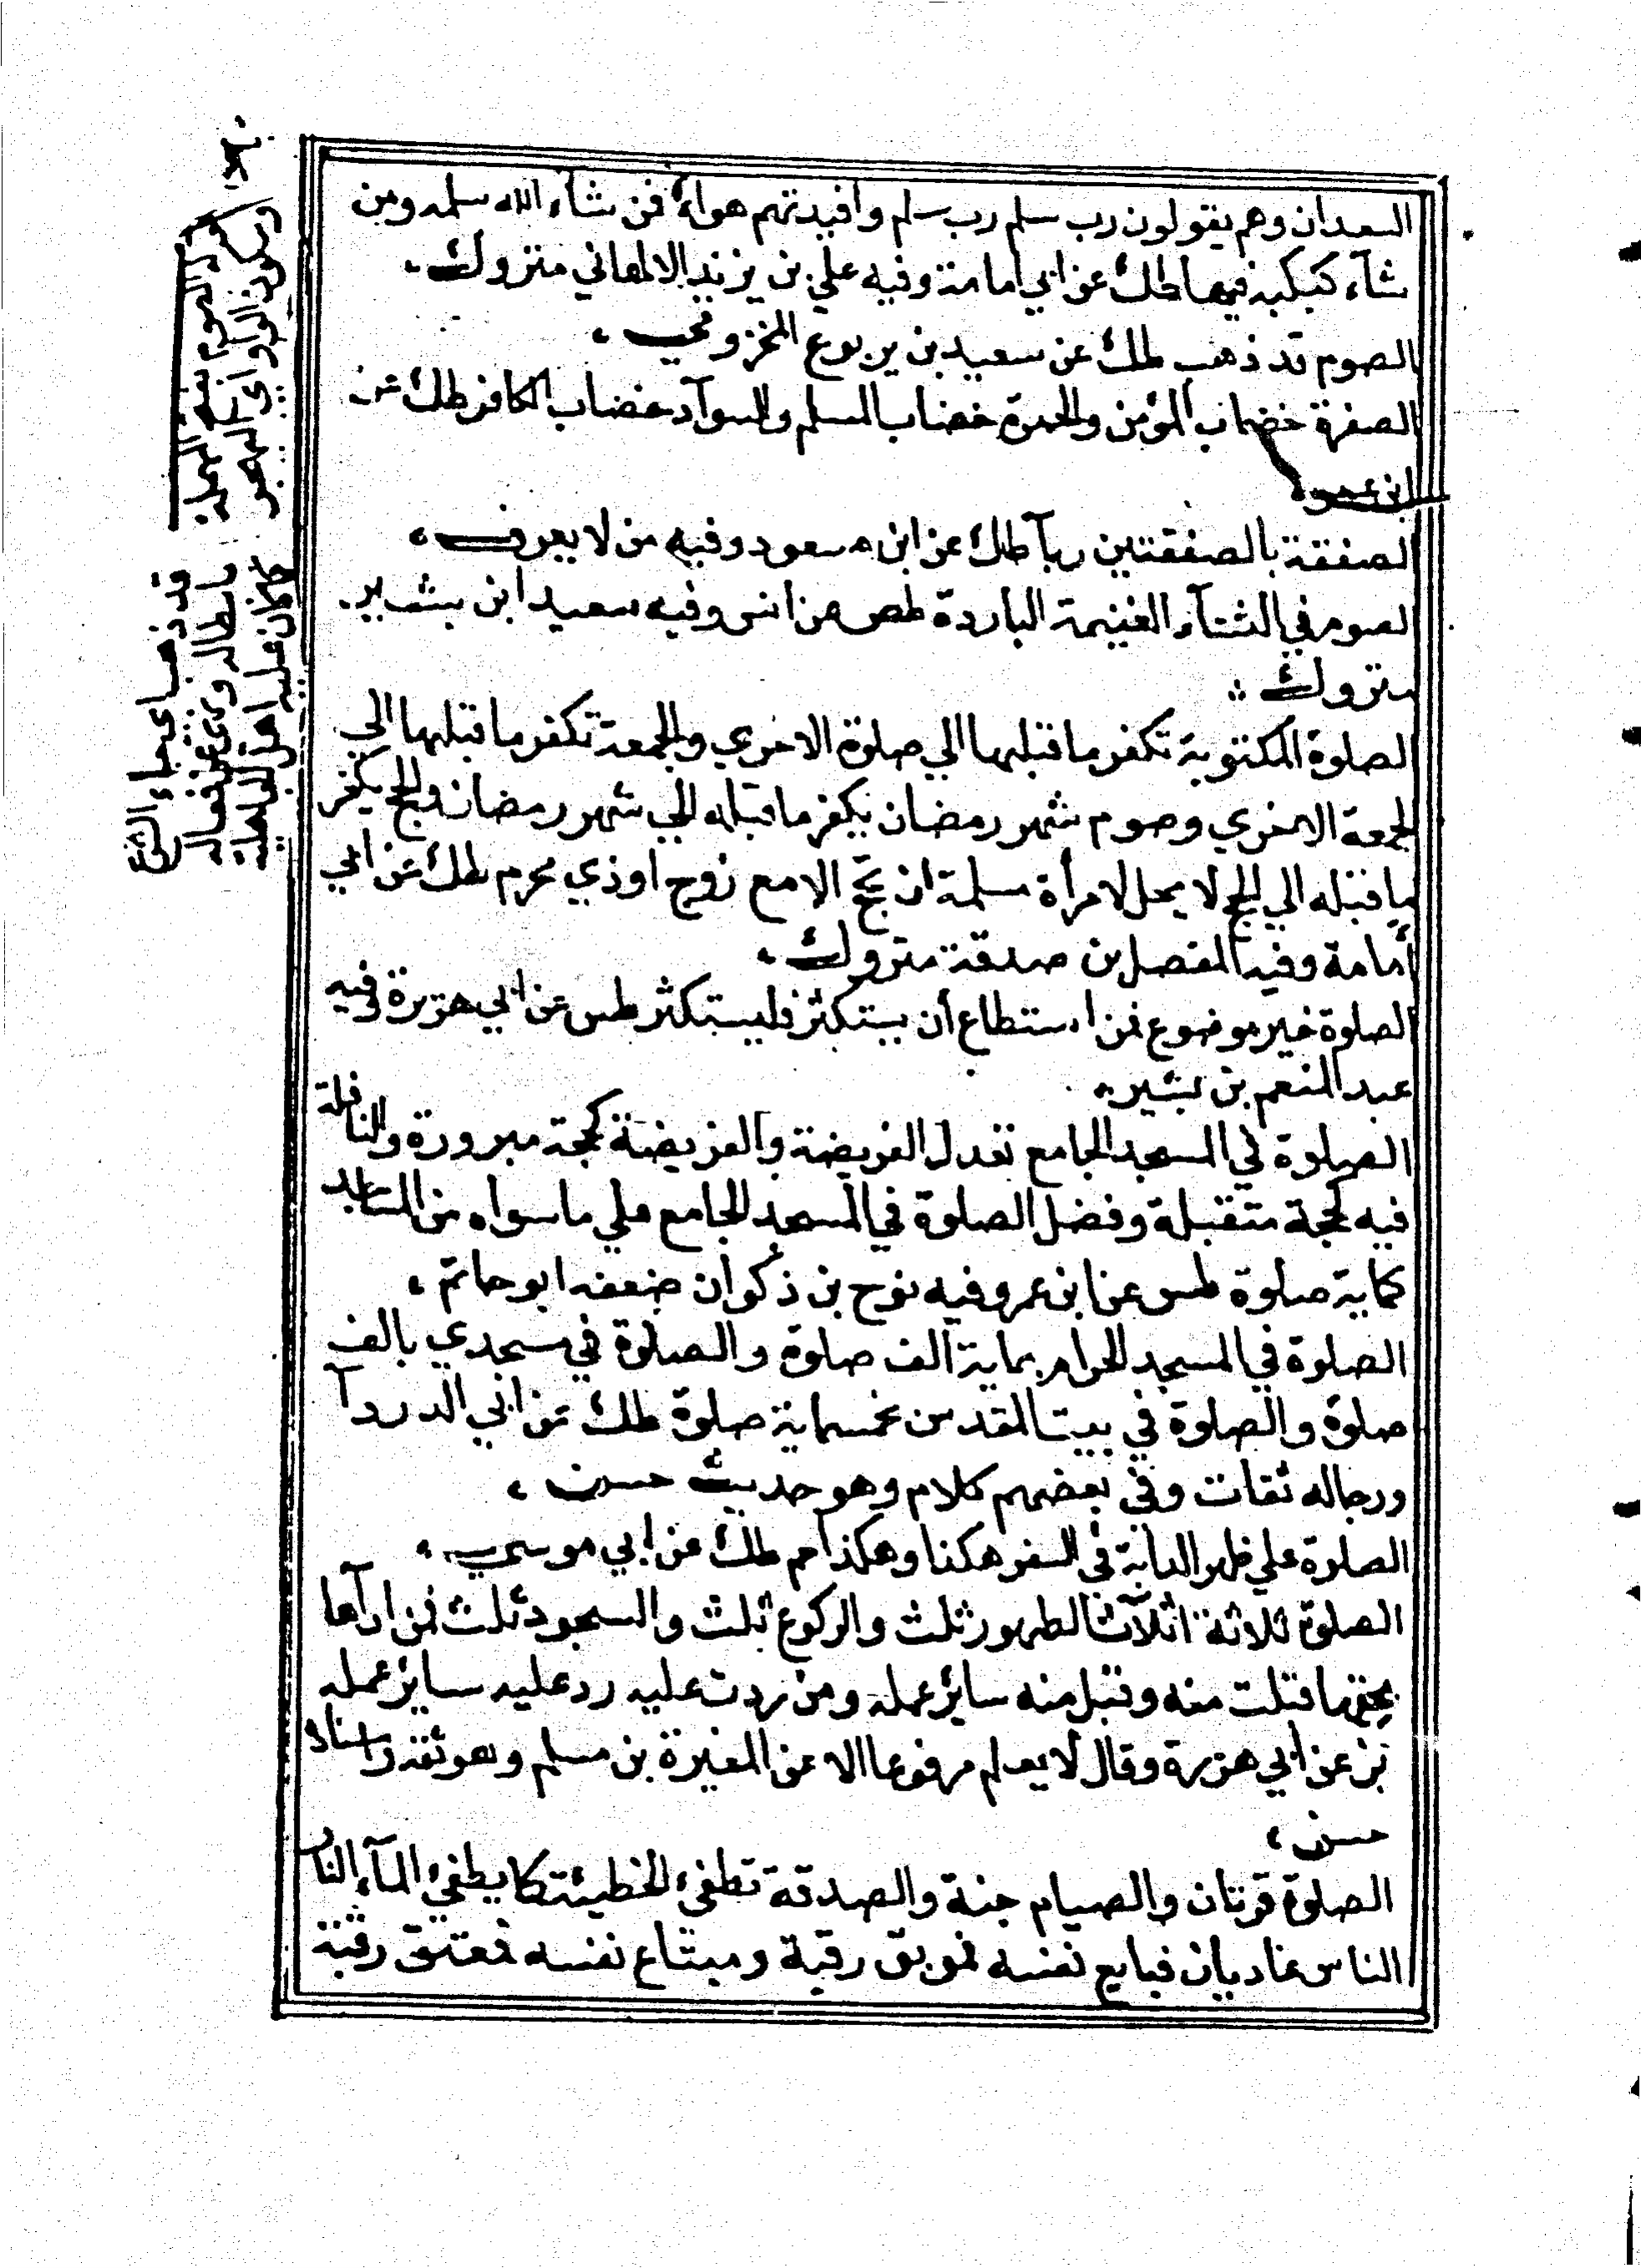 السعدان وهم يقولون رب سلم رب سلم وافيدتهم هواء فمن شاء الله سلمه ومن
شاء كبكبه فيها طك عن ابي امامة وفيه علي بن يزيد الالهاني متروك
الصوم قد ذهب طك عن سعيد بن يربوع المخزومي
الصفرة خضاب المؤمن والحمرة خضاب المسلم والسوآد خضاب الكافر طك عن
ابن عمر
الصفقة بالصفقتين ربآ طك عن ابن مسعود وفيه من لا يعرف
الصوم في الشتآء الغنيمة الباردة طص عن انس وفيه سعيد ابن بشير
متروك
الصلوة المكتوبة تكفر ما قبلها الي صلوة الاخري والجمعة تكفر ما قبلها الي
الجمعة الاخري وصوم شهر رمضان يكفر ما قبله الي شهر رمضان والحج يكفر
ما قبله الي الحج لا يحل لامرأة مسلمة ان تحج الا مع زوج او ذي محرم طك عن ابي
أمامة وفيه المفضل بن صدقة متروك
الصلوة خير موضوع فمن استطاع أن يستكثر فليستكثر طس عن ابي هريرة وفيه
عبد المنعم بن بشير
الصلوة في المسجد الجامع تعدل الفريضة والفريضة كحجة مبرورة والنافلة
فيه كحجة متقبلة وفضل الصلوة في المسجد الجامع علي ما سواه من المساجد
كماية صلوة طس عن ابن عمر وفيه نوح بن ذكوان ضعفه ابو حاتم
الصلوة في المسجد الحرام بماية الف صلوة والصلوة في مسجدي بالف
صلوة والصلوة في بيت المقدس بخمسماية صلوة طك عن ابي الدردآ
ورجاله ثقات وفي بعضهم كلام وهو حديث حسن
الصلوة علي ظهر الدابة في السفر هكذا وهكذا حم طك عن ابي موسي
الصلوة ثلاثة اثلآث الطهور ثلث والركوع ثلث والسجود ثلث فمن ادآها
بحقها قبلت منه وقبل منه سائر عمله ومن ردت عليه رد عليه سائر عمله
بز عن ابي هريرة وقال لا يعلم مرفوعا الا عن المغيرة بن مسلم وهو ثقة واسناده
حسن
الصلوة قربان والصيام جنة والصدقة تطفئ الخطيئة كما يطفئ المآء النار
الناس غاديان فبايع نفسه فموبق رقبة ومبتاع نفسه فمعتق رقبة